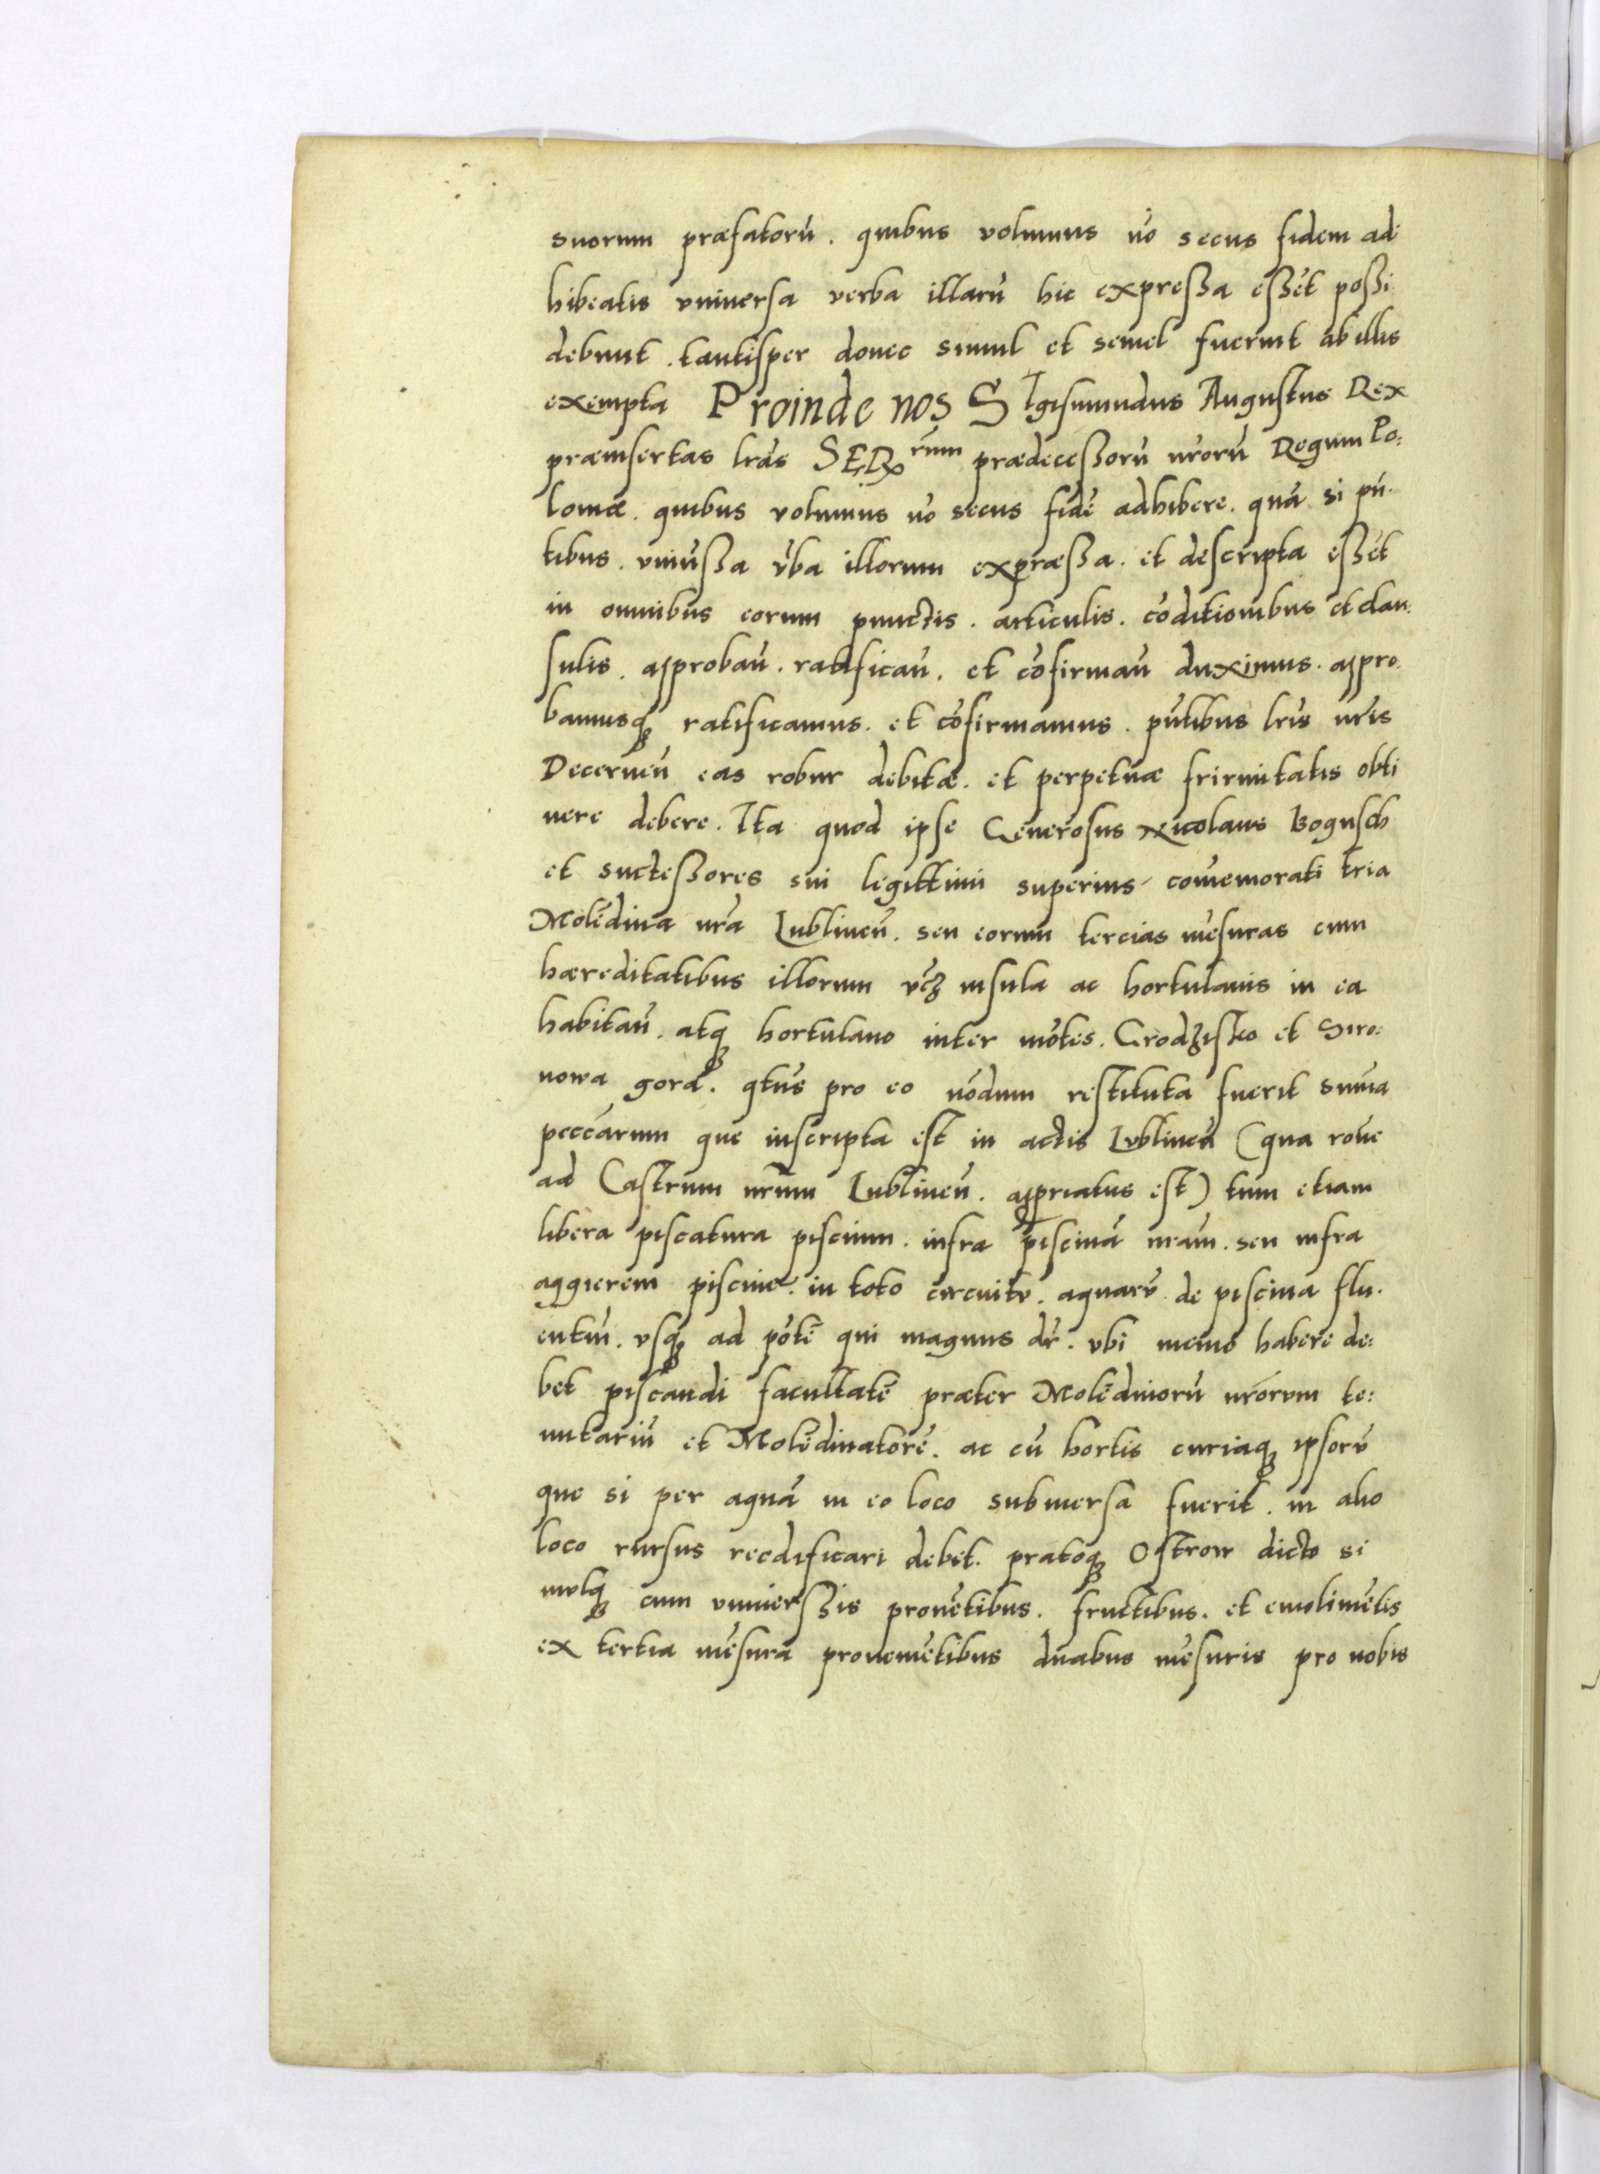 suorum præfatorũ. quibus volumus nõ secus fidem ad
hibeatis vniuersa verba illarũ hic expreßa eßẽt poßi
debunt. tantisper donec simul et semel fuerint ab illis
exempta Proinde nos SIgismundus Augustus Rex
præinsertas lrãs SERorum prædeceßorũ nrõrũ Regum Po:
loniæ. quibus volumus nõ secus fidẽ adhibere. quã si pñ
tibus. vniũßa vba illorum expræßa. et descripta eßẽt
in omnibus eorum punctis. articulis. cõditionibus et clau:
sulis. approbañ. ratificañ. et cõfirmañ duximus. appro
bamusq̃ ratificamus. et cõfirmamus. pñtibus lrĩs nrĩs
Decerneñ eas robur debitæ. et perpetuæ frirmitatis obti
nere debere. Ita quod ipse Generosus Nicolaus Bogusch
et suctessores sui legittimi superius comemorati tria
Molẽdina nrã Lublineñ. seu eorum tercias mẽsuras cum
hæreditatibus illorum vcʒ insula ac hortulanis in ea
habitañ. atq̃ hortulano inter mõtes. Grodʒisko et Siro:
nowa gora. qtũs pro eo nõdum restituta fuerit sum̃a
peccẽarum que inscripta est in actis Lublineñ (qua roñe
ad Castrum nrũm Lublineñ. appriatus est) tum etiam
libera piscatura piscium. infra piscinã nrãm. seu infra
aggierem piscine. in toto circuitu. aquarũ de piscina flu.
entiũ. vsq̃ ad põtẽ qui magnus dr̃. vbi nemo habere de:
bet piscandi facultatẽ præter Molẽdinorũ nrõrum te:
nutariũ et Molẽdinatorẽ. ac cũ hortis curiaq̃ ipsorũ
que si per aquã in eo loco submersa fuerit. in alio
loco rursus reedificari debet. pratoq̃ Ostrow dicto si
mulq̃ cum vniuerßis prouẽtibus. fructibus. et emolimẽtis
ex tertia mẽsura prouemẽtibus duabus mẽsuris pro nobis